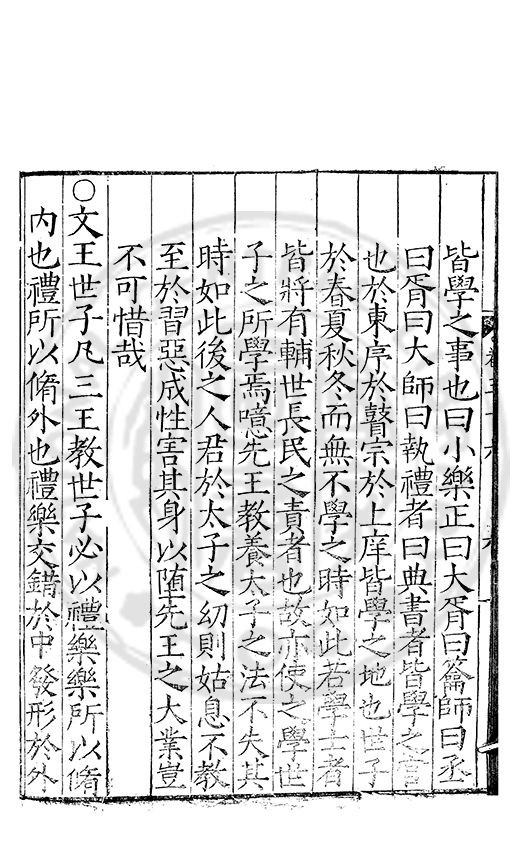 皆學之事也曰小樂正曰大胥曰籥師曰丞
曰胥曰大師曰執禮者曰典書者皆學之官
也於東序於瞽宗於上庠皆學之地也世子
於春夏秋冬而無不學之時如此若學士者
皆將有輔世長民之責者也故亦使之學世
子之所學焉噫先王教養太子之法不失其
時如此後之人君於太子之幼則姑息不教
至於習惡成性害其身以墮先王之大業豈
不可惜哉
○文王世子凡三王教世子必以禮樂樂所以脩
内也禮所以脩外也禮樂交錯於中發形於外